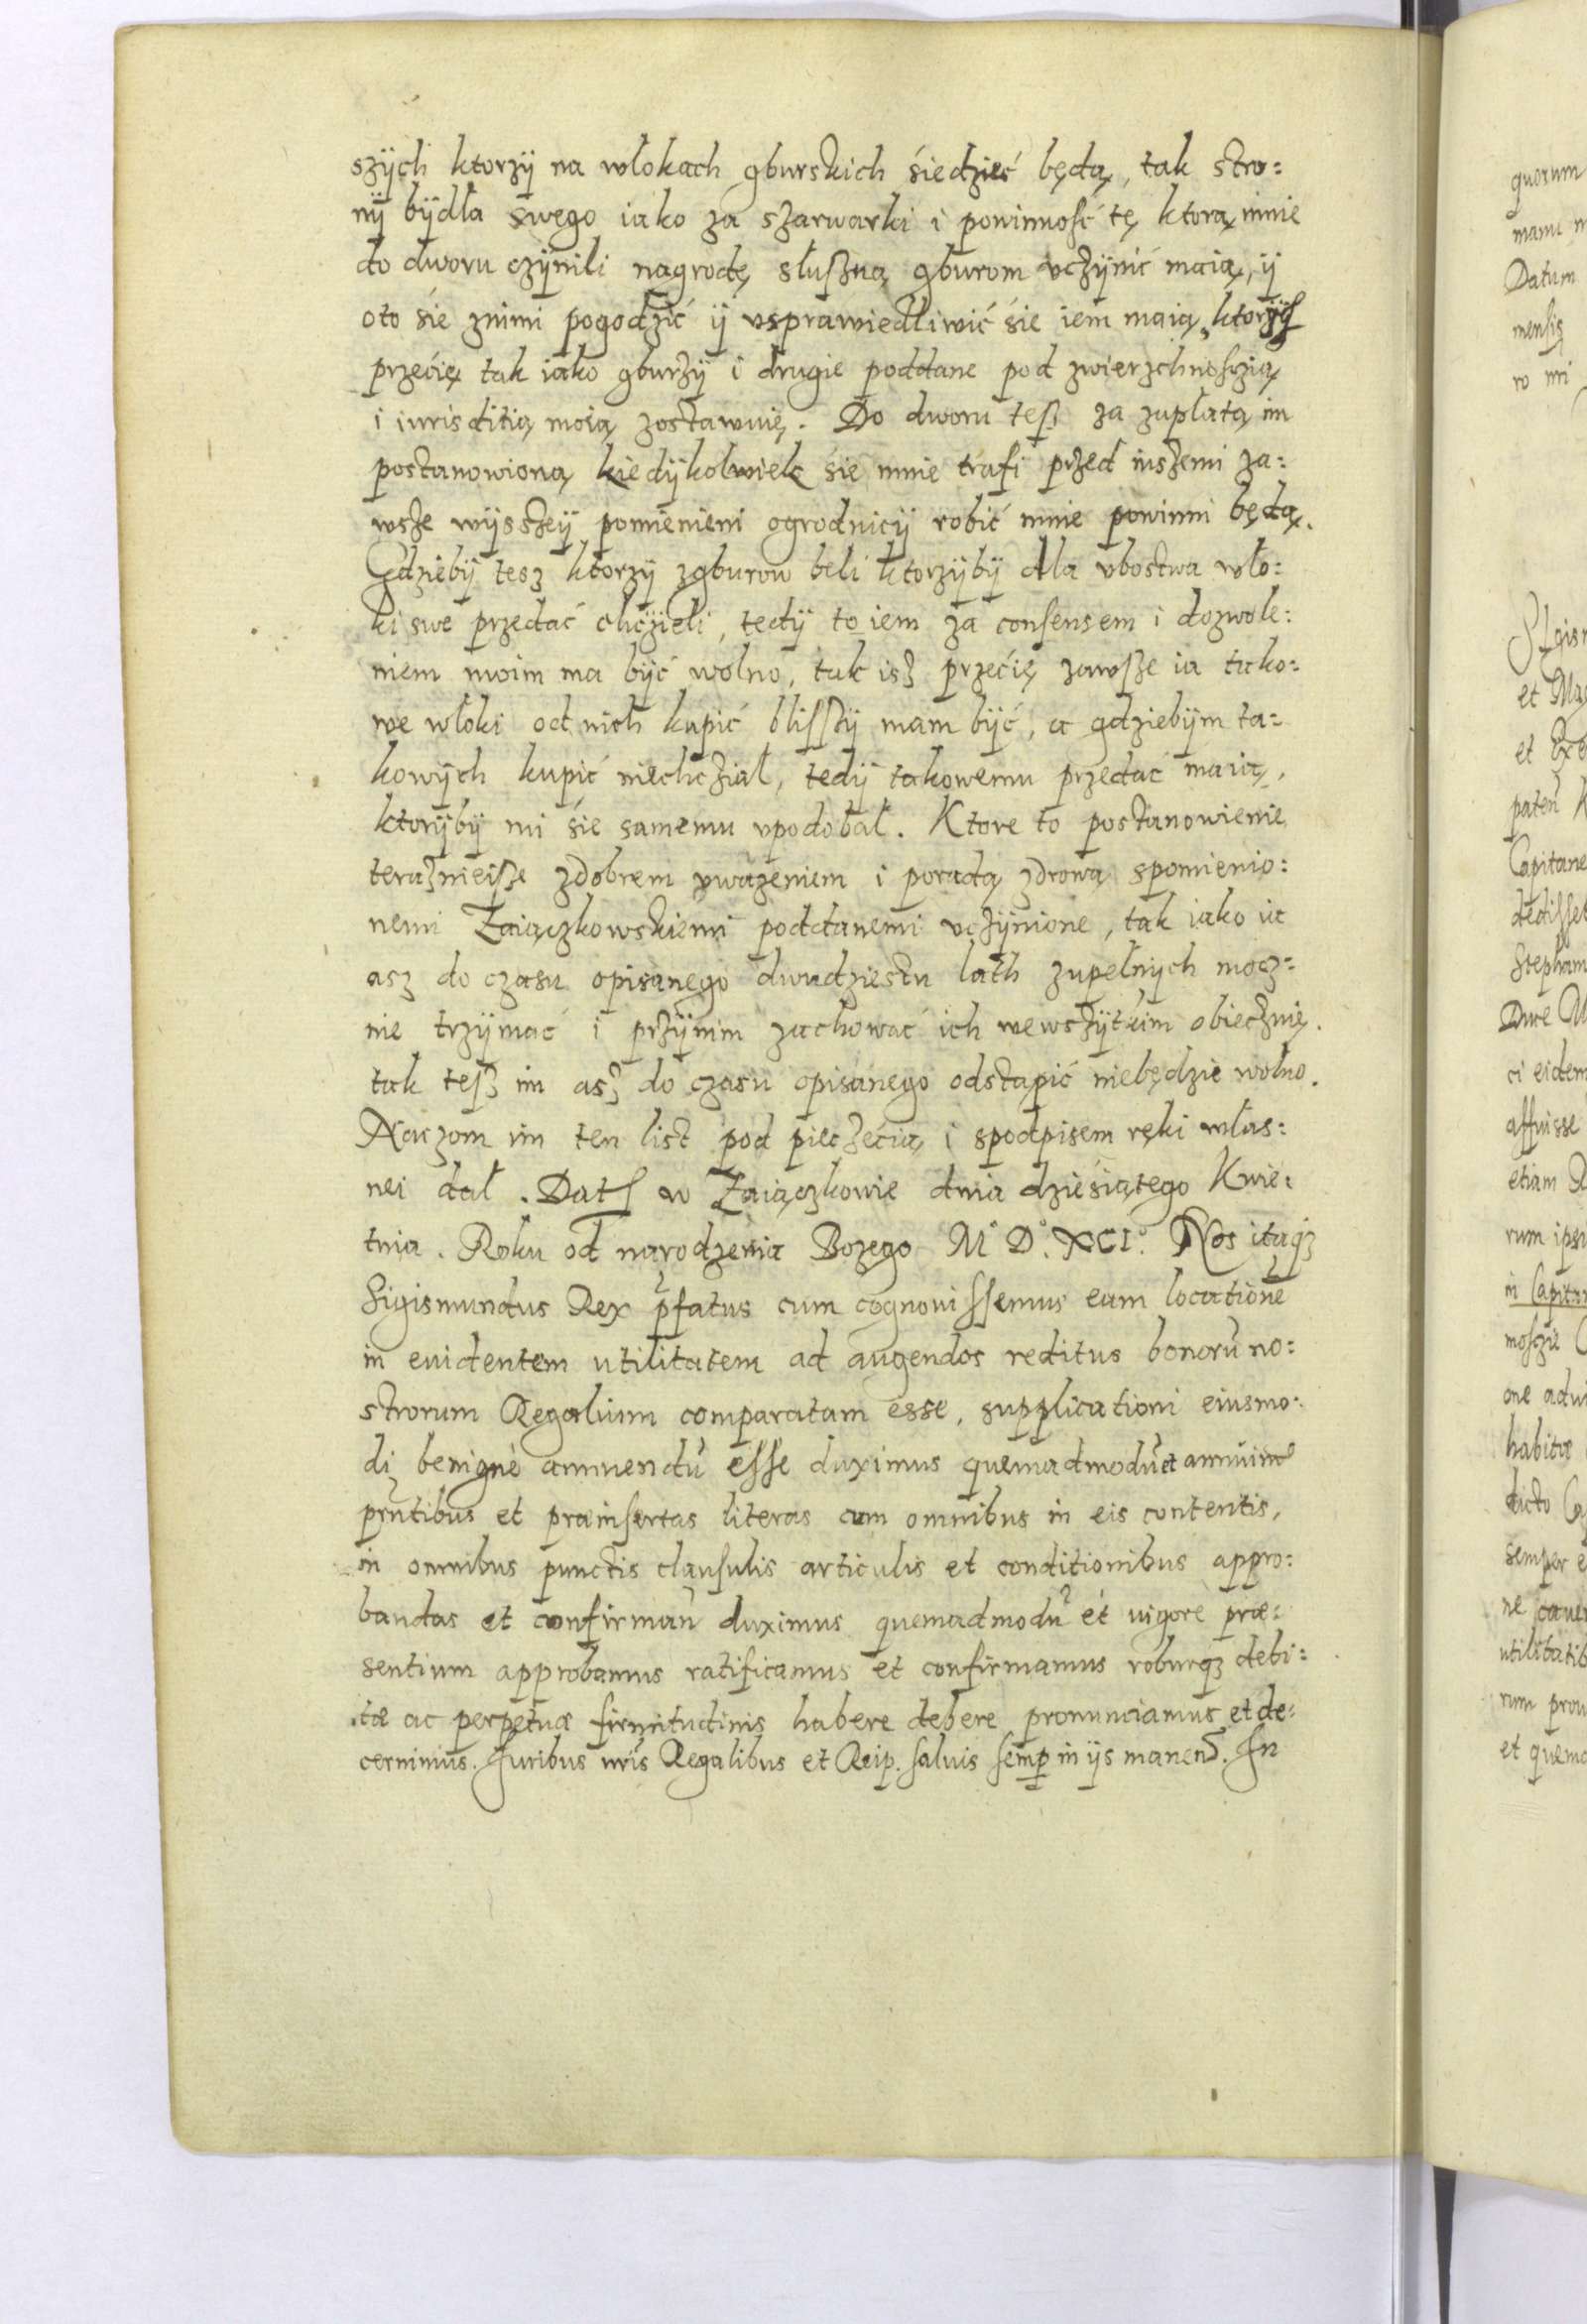 szÿch ktorzÿ na włokach gburskich śiedzieć będą, tak stro:
nÿ bÿdła swego iako za szarwarki i powinność tę ktorą mnie
do dworu czÿnili nagrodę słuszną gburom vczÿnić maią, ÿ
oto śie znimi pogodzić ÿ vsprawiedliwić śie iem maią, ktorzÿ
przećię tak iako gburzÿ i drugie poddane pod zwierzchnosczią
i iurisditią moią zostawuię. Do dworu tesz za zupłatą im
postanowioną kiedÿkolwiek śie mnie trafi przed inszemi za:
wsze wÿsszeÿ pomienieni ogrodnicÿ robić mnie powinni będą.
Gdziebÿ tesz ktorzÿ zgburow beli ktorzÿbÿ dla vbostwa wło:
ki swe przedać chczieli, tedÿ to iem za consensem i dozwole:
niem moim ma bÿć wolno, tak isz przećię zawsze ia tako:
we włoki od nich kupić blisszÿ mam bÿć, a gdziebÿm ta:
kowÿch kupić niechcział, tedÿ takowemu przedać maią,
ktorÿbÿ mi śie samemu vpodobał. Ktore to postanowienie
terazniejsze zdobrem vwazeniem i poradą zdrową spomienio:
nemi Zaiączkowskiemi poddanemi vczÿnione, tak iako ia
asz do czasu opisanego dwudziestu lath zupełnÿch mocz:
nie trzÿmać i przÿnim zachować ich wewszÿtkim obiecznię.
tak tesz im asz do czasu opisanego odstąpić niebędzie wolno.
Naczom im ten list pod pieczećią i spodpisem ręki włas:
nei dał. Dat w Zaiączkowie dnia dzieśiątego Kwie:
tnia. Roku od narodzenia Bozego M° D°. XCI°. Nos itaqȝ
Sigismundus Rex p̃fatus cum cognouissemus eam locationẽ
in euidentem vtilitatem ad augendos reditus bonorũ no:
strorum Regalium comparatam esse, supplicationi eiusmo:
di benignè annuendũ esse duximus quemadmodũ annuim9
pr̃ntibus et præinsertas literas cum omnibus in eis contentis,
in omnibus punctis clausulis articulis et conditionibus appro:
bandas et confirmañ duximus quemadmodũ et uigore præ:
sentium approbamus ratificamus et confirmamus roburqȝ debi:
tæ ac perpetuæ firmitudinis habere debere pronunciamus et de:
cernimus. Juribus nr̃is Regalibus et Reip. saluis semp̱ in ijs maneñ. In